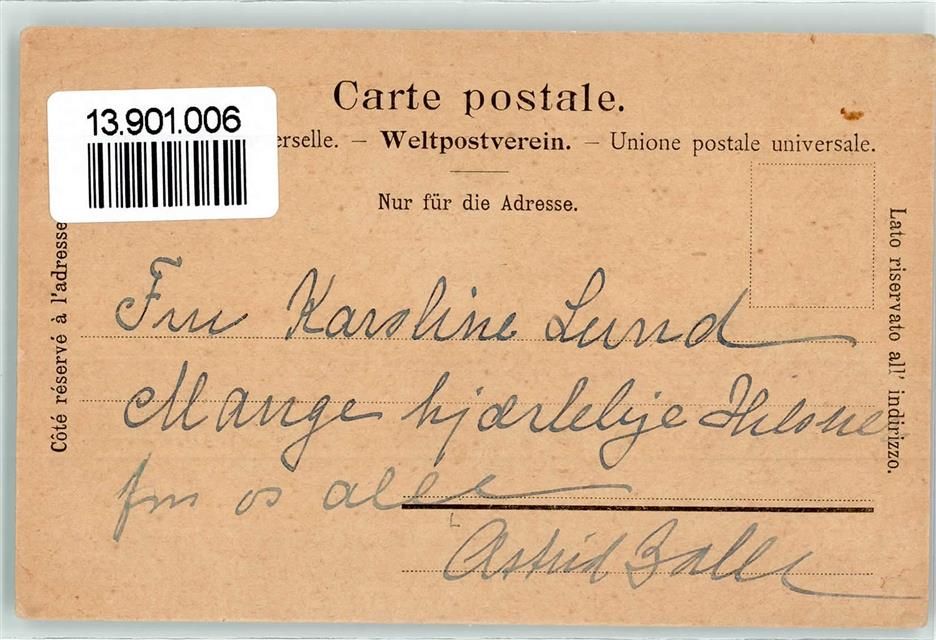 13.901.006
Carte postale.
erselle. – Weltpostverein. – Unione postale universale.
Nur für die Adresse.
Côté réservé à l'adresse
Lato riservato all' indirizzo.
Fru Karoline Lund
Mange hjærtelige Hilsner
fra os alle
Astrid Balle